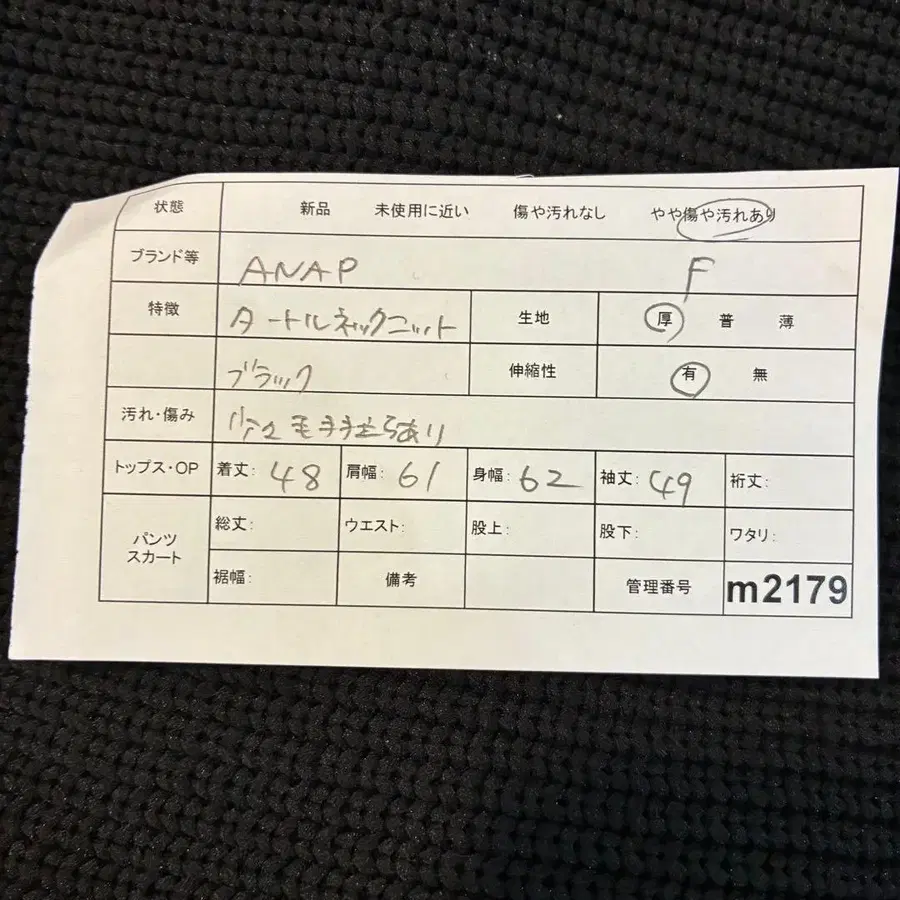 状態 新品 未使用に近い 傷や汚れなし やや傷や汚れあり
ブランド等 ANAP F
特徴 タートルネックニット 生地 厚 普 薄
ブラック 伸縮性 有 無
汚れ・傷み あり
トップス・OP 着丈: 48 肩幅: 61 身幅: 62 袖丈: 49 裄丈:
パンツ スカート 総丈: ウエスト: 股上: 股下: ワタリ:
裾幅: 備考 管理番号 m2179